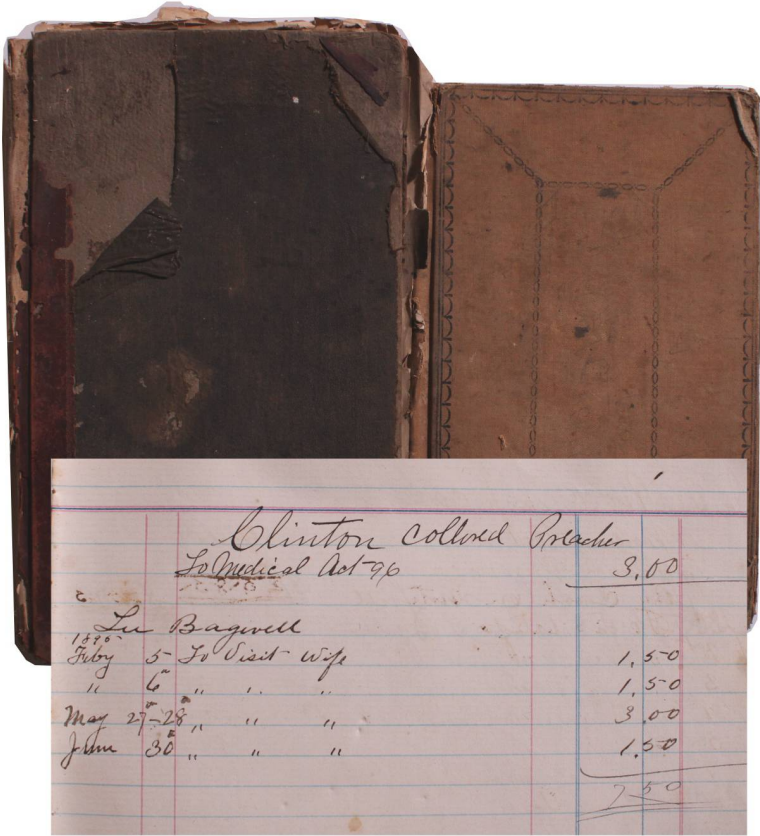 Clinton Collored Preacher
To Medical Act 96 3.00
Lee Bagwell
1895
Feby 5 To Visit Wife 1.50
" 6 " " " 1.50
May 27-28 " " " 3.00
June 30 " " " 1.50
7.50